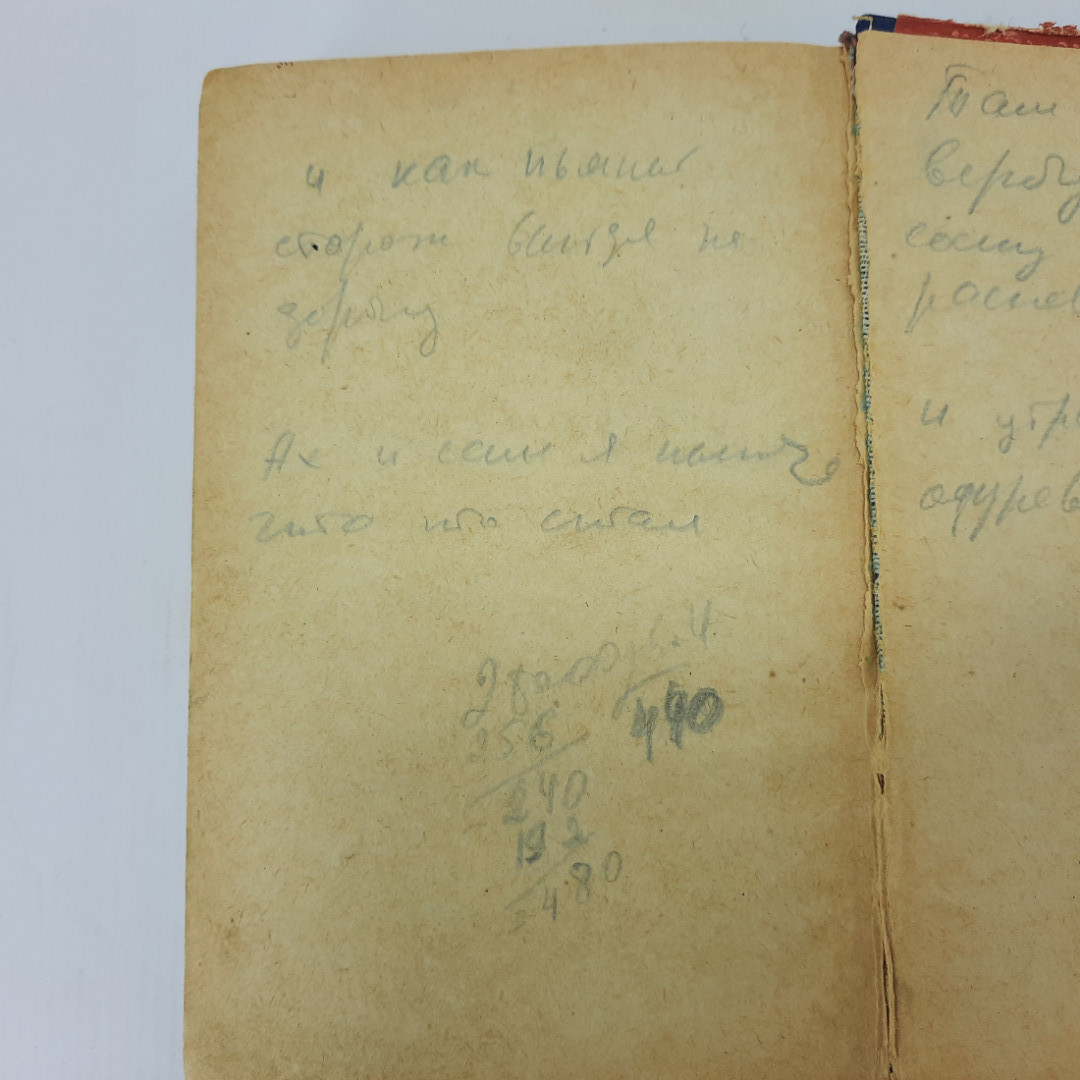 и как пьяный
сторож выйдя на
дорогу
Ах и сам я нынче
чтото
стал
28 6.4
256 440
240
192
480
Там
вербу
сосну
распев
и утр
одурев